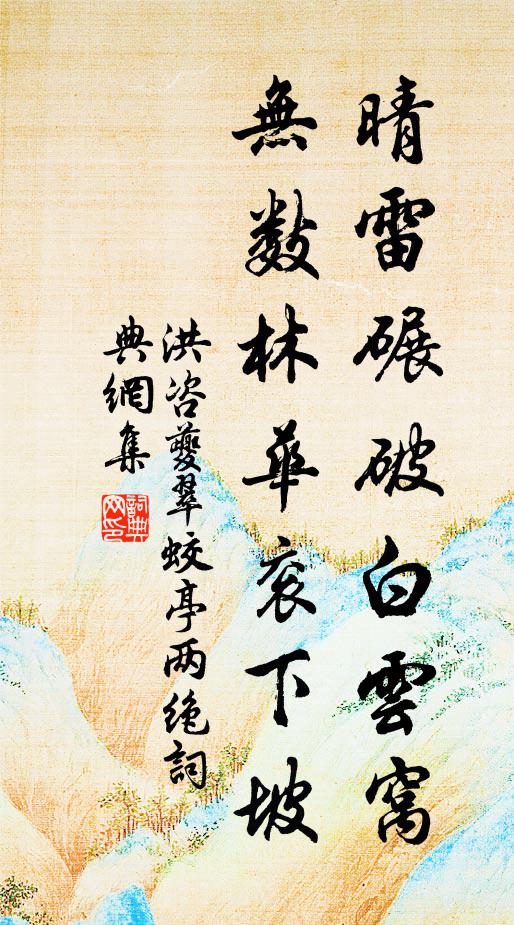 晴雷碾破白雲窩
無數林華衮下坡
洪咨夔翠蛟亭两绝詞
典網集
詞典網印